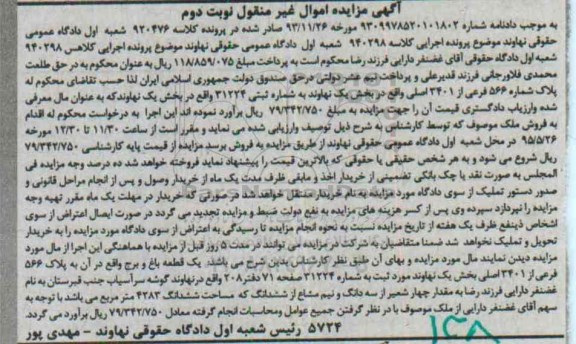 آگهی مزایده اموال غیر منقول نوبت دوم
به موجب دادنامه شماره ۹۳۰۹۹۷۸۵۲۰۱۰۱۸۰۲ مورخه ۹۳/۱۱/۲۶ صادر شده در پرونده کلاسه ۹۲۰۴۷۶ شعبه اول دادگاه عمومی
حقوقی نهاوند موضوع پرونده اجرایی کلاسه ۹۴۰۲۹۸ شعبه اول دادگاه عمومی حقوقی نهاوند موضوع پرونده اجرایی کلاهس ۹۴۰۲۹۸
شعبه اول دادگاه حقوقی آقای غضنفر دارایی فرزند رضا محکوم است به پرداخت مبلغ ۱۱۸/۸۵۹/۰۷۵ ریال به عنوان محکوم به در حق طلعت
محمدی فلاورجانی فرزند قدیرعلی و پرداخت نیم عشر دولتی درحق صندوق دولت جمهوری اسلامی ایران لذا حسب تقاضای محکوم له
پلاک شماره ۵۶۶ فرعی از ۳۴۰۱ اصلی واقع در بخش یک نهاوند به شماره ثبتی ۳۱۲۲۴ واقع در بخش یک نهاوندکه به عنوان مال معرفی
شده وارزیاب دادگستری قیمت آن را جهت مزایده به مبلغ ۷۹/۳۴۲/۷۵۰ ریال برآورد نموده اند این اجرا به درخواست محکوم له اقدام
به فروش ملک موصوف که توسط کارشناس به شرح ذیل توصیف وارزیابی شده می نماید و مقرر است از ساعت ۱۱/۳۰ تا ۱۲/۳۰ مورخه
۹۵/۵/۲۶ در محل شعبه اول دادگاه عمومی حقوقی نهاوند از طریق مزایده به فروش برسد مزایده از قیمت پایه کارشناسی ۷۹/۳۴۲/۷۵۰
ریال شروع می شود و به هر شخص حقیقی یا حقوقی که بالاترین قیمت را پیشنهاد نماید فروخته خواهد شد ده درصد وجه مزایده فی
المجلس به صورت نقد یا چک بانکی تضمینی از خریدار اخذ و مابقی ظرف مدت یک ماه از خریدار وصول و پس از انجام مراحل قانونی و
صدور دستور تملیک از سوی دادگاه مورد مزایده به نام خریدار منتقل خواهد شد در صورتی که خریدار در مهلت یک ماه مقرر تهیه وجه
مزایده را نپردازد سپرده وی پس از کسر هزینه های مزایده به نفع دولت ضبط و مزایده تجدید می گردد در صورت ایصال اعتراض از سوی
اشخاص ذینفع ظرف یک هفته از تاریخ مزایده نسبت به نحوه انجام مزایده تا رسیدگی به اعتراض از سوی دادگاه مورد مزایده را به خریدار
تحویل و تملیک نخواهد شد ضمنا متقاضیان به شرکت در مزایده می توانند در مدت ۵ روز قبل از مزایده با هماهنگی این اجرا از مال مورد
مزایده دیدن نمایند مال مورد و مزایده و بهای آن طبق نظر کارشناس بدین شرح می باشد: یک قطعه باغ و برج واقع در آن به پلاک ۵۶۶
فرعی از ۳۴۰۱ اصلی بخش یک نهاوند مورد ثبت به شماره ۳۱۲۲۴ صفحه ۷۱ دفتر۲۰۸ واقع درنهاوند گوشه سرآسیاب جنب قبرستان به نام
غضنفر دارایی فرزند رضا به مقدار چهار شعیر از سه دانگ و نیم مشاع از ششدانگ که مساحت ششدانگ ۴۲۸۳ متر مربع می باشد با توجه به
سهم آقای غضنفر دارایی از ملک موصوف با در نظر گرفتن جمیع عوامل ومحاسبات انجام گرفته معادل ۷۹/۳۴۲/۷۵۰ ریال برآورد می گردد.
۵۷۲۴ رئیس شعبه اول دادگاه حقوقی نهاوند - مهدی پور
۱۳۸